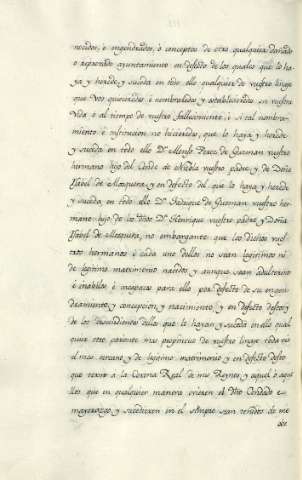 nocidos, o engendrados, o conceptos de otro qualquiera dañado
o reprovado ayuntamiento en defecto de los quales que lo ha-
ya y herede, y suceda en todo ello qualquier de vuestro linage
que vos quisieredes e nombraredes y establecieredes en vuestra
vida o al tiempo de vuestro fallecimiento, e si tal nombra-
miento e institucion no hicieredes, que lo haya y herede
y suceda en todo ello Dn. Alonso Perez de Guzman vuestro
hermano hijo del Conde de Niebla vuestro padre, y de Doña
Isabel de Mosquera, y en defecto del que lo haya y herede
y suceda en todo ello Dn. Fadrique de Guzman vuestro her-
mano hijo de los dhos Dn. Henrrique vuestro padre, y Doña
Isabel de Mosquera, no embargante que los dichos vues-
tros hermanos e cada uno dellos no sean legitimos ni
de legitimo matrimonio nacidos y aunque sean adulterinos
e inabiles, e incapaces para ello por defecto de su engen-
dramiento y concepcion, y nacimiento y en defecto destos y
de los descendientes dellos que lo hayan y suceda en ello qual-
quier otro pariente mas propincuo de vuestro linage cada vno
el mas cercano y de legitimo matrimonio y en defecto desto
que torne a la Corona Real de mis Reynos y aquel o aque-
llos que en qualquier manera ovieren el dho Condado e
mayorazgo y sucedieren en el siempre sean tenidos de me